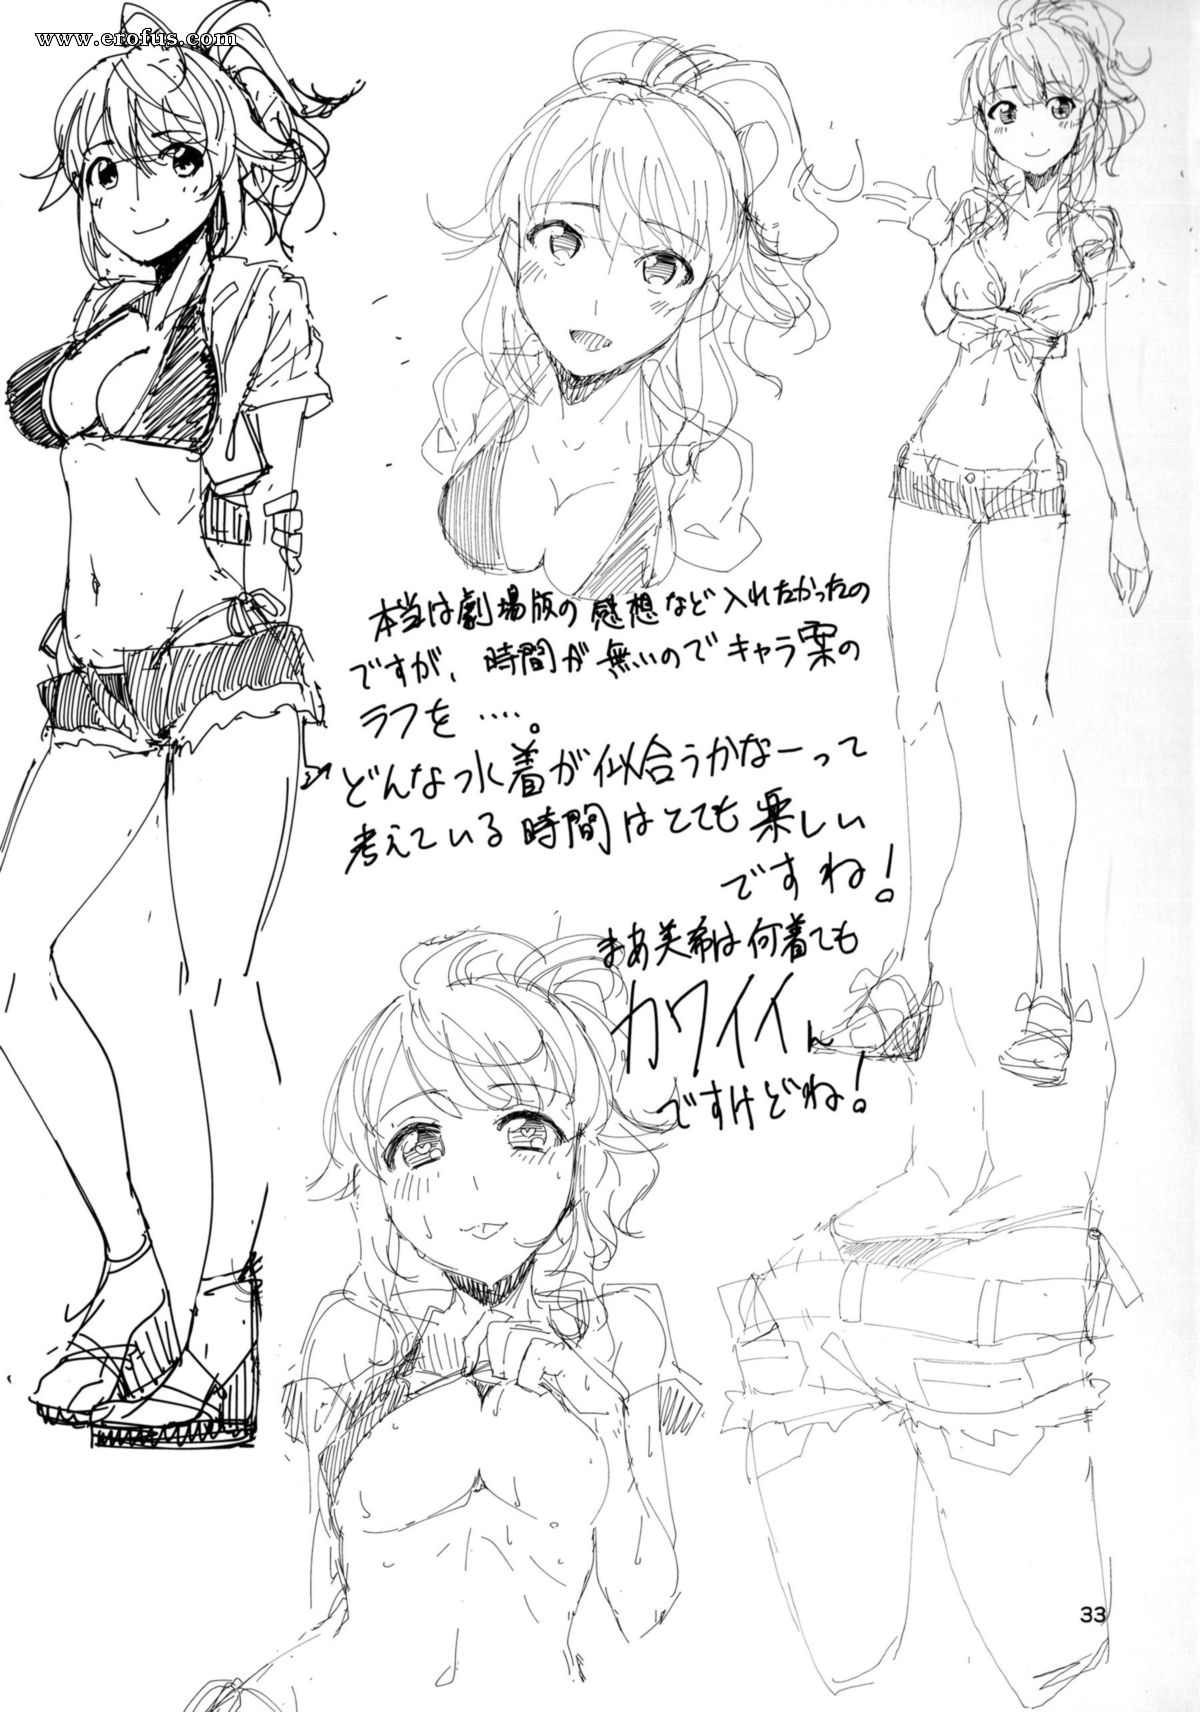 www.erofus.com
本当は劇場版の感想など入れたかったの
ですが、時間が無いのでキャラ案の
ラフを‥‥。
どんな水着が似合うかなーって
考えている時間はとても楽しい
ですね!
まあ美希は何着ても
カワイイん
ですけどね!
33